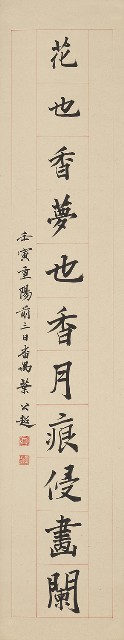 花也香夢也香月痕侵畫闌
壬寅重陽前三日番禺葉公超